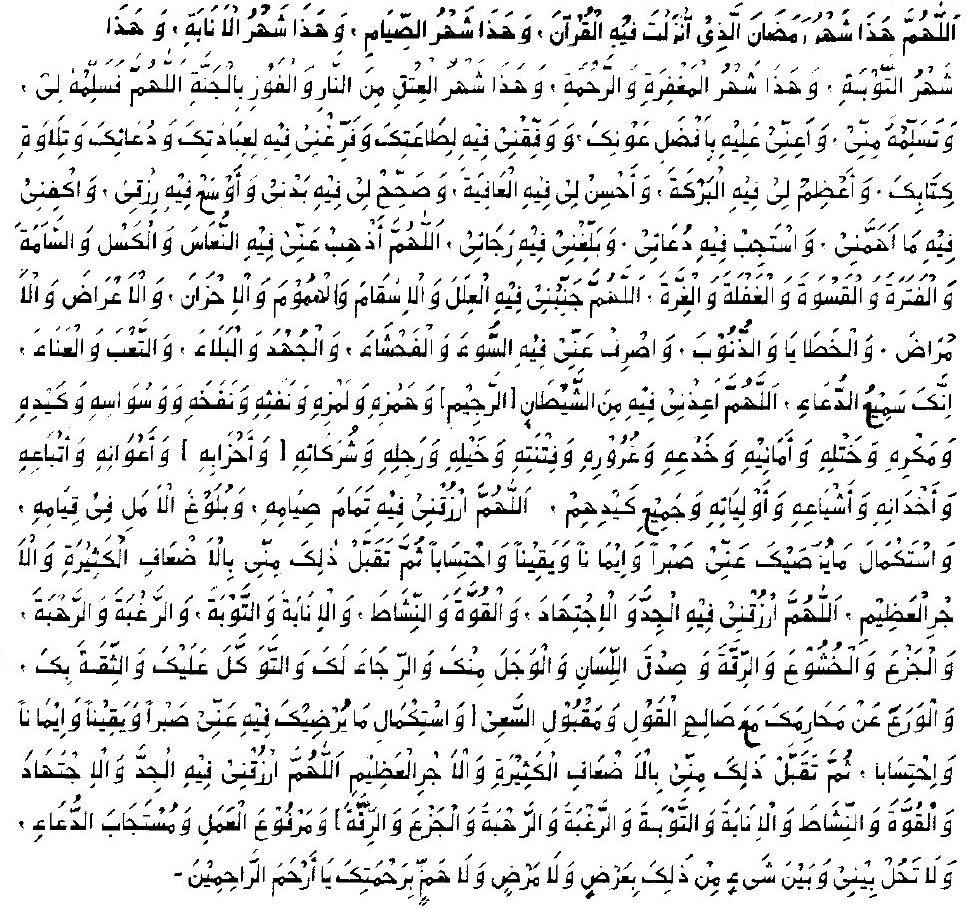 اَللّٰهُمَّ هَذَا شَهْرُ رَمَضَانَ الَّذِىْ اَنْزَلْتَ فِيْهِ الْقُرْآنَ ، وَ هَذَا شَهْرُ الصِّيَامِ ، وَ هَذَا شَهْرُ الْاَ نَابَةِ ، وَ هَذَا
شَهْرُ التَّوْبَةِ ، وَ هَذَا شَهْرُ الْمَغْفِرَةِ وَ الرَّحْمَةِ ، وَ هَذَا شَهْرُ الْعِتْقِ مِنَ النَّارِ وَ الْفَوْزِ بِالْجَنَّةِ اَللّٰهُمَّ فَسَلِّمْهُ لِىْ ،
وَ تَسَلَّمْهُ مِنِّىْ ، وَ اَعِنِّىْ عَلَيْهِ بِاَفْضَلِ عَوْنِكَ ، وَ وَفِّقْنِىْ فِيْهِ لِطَاعَتِكَ وَ فَرِّغْنِىْ فِيْهِ لِعِبَادَتِكَ وَ دُعَائِكَ وَ تِلَاوَةِ
كِتَابِكَ ، وَ اَعْظِمْ لِىْ فِيْهِ الْبَرَكَةَ ، وَ اَحْسِنْ لِىْ فِيْهِ الْعَافِيَةَ ، وَ صَحِّحْ لِىْ فِيْهِ بَدَنِىْ وَ اَوْسِعْ فِيْهِ رِزْقِىْ ، وَ اكْفِنِىْ
فِيْهِ مَا اَهَمَّنِىْ ، وَ اسْتَجِبْ فِيْهِ دُعَائِىْ ، وَ بَلِّغْنِىْ فِيْهِ رَجَائِىْ ، اَللّٰهُمَّ اَذْهِبْ عَنِّىْ فِيْهِ النُّعَاسَ وَ الْكَسْلَ وَ السَّامَةَ
وَ الْفَتْرَةَ وَ الْقَسْوَةَ وَ الْغَفْلَةَ وَ الْغِرَّةَ ، اَللّٰهُمَّ جَنِّبْنِىْ فِيْهِ الْعِلَلَ وَ الْاَسْقَامَ وَ الْهُمُوْمَ وَ الْاَحْزَانَ ، وَ الْاَ عْرَاضَ وَ الْاَ
مْرَاضَ ، وَ الْخَطَايَا وَ الذُّنُوْبَ ، وَ اصْرِفْ عَنِّىْ فِيْهِ السُّوْءَ وَ الْفَحْشَاءَ ، وَ الْجُهْدَ وَ الْبَلَاءَ ، وَ التَّعْبَ وَ الْعَنَاءَ ،
اِنَّكَ سَمِيْعُ الدُّعَاءِ ، اَللّٰهُمَّ اَعِذْنِىْ فِيْهِ مِنَ الشَّيْطَانِ [ الرَّجِيْمِ ] وَ هَمْزِهِ وَ لَمْزِهِ وَ نَفْثِهِ وَ نَفْخِهِ وَ وَسْوَاسِهِ وَ كَيْدِهِ
وَ مَكْرِهِ وَ خَتْلِهِ وَ اَمَانِيْهِ وَ خَدْعِهِ وَ غُرُوْرِهِ وَ فِتْنَتِهِ وَ خَيْلِهِ وَ رَجِلِهِ وَ شُرَكَائِهِ [ وَ اَحْزَابِهِ ] وَ اَعْوَانِهِ وَ اَتْبَاعِهِ
وَ اَخْدَانِهِ وَ اَشْيَاعِهِ وَ اَوْلِيَائِهِ وَ جَمِيْعِ كَيْدِهِمْ ، اَللّٰهُمَّ ارْزُقْنِىْ فِيْهِ تَمَامَ صِيَامِهِ ، وَ بُلُوْغَ الْاَ مَلِ فِىْ قِيَامِهِ ،
وَ اسْتِكْمَالَ مَا يُرْضِيْكَ عَنِّىْ صَبْراً وَ اِيْمَا ناً وَ يَقِيْناً وَ احْتِسَاباً ثُمَّ تَقَبَّلْ ذٰلِكَ مِنِّىْ بِالْاَ ضْعَافِ الْكَثِيْرَةِ وَ الْاَ
جْرِ الْعَظِيْمِ ، اَللّٰهُمَّ ارْزُقْنِىْ فِيْهِ الْجِدَّ وَ الْاِجْتِهَادَ ، وَ الْقُوَّةَ وَ النَّشَاطَ ، وَ الْاِنَابَةَ وَ التَّوْبَةَ ، وَ الرَّغْبَةَ وَ الرَّهْبَةَ ،
وَ الْجَزْعَ وَ الْخُشُوْعَ وَ الرِّقَّةَ وَ صِدْقَ اللِّسَانِ وَ الْوَجَلَ مِنْكَ وَ الرَّجَاءَ لَكَ وَ التَّوَ كُّلَ عَلَيْكَ وَ الثِّقَةَ بِكَ ،
وَ الْوَرَعَ عَنْ مَحَارِمِكَ مَعَ صَالِحِ الْقَوْلِ وَ مَقْبُوْلِ السَّعْىِ [ وَ اسْتِكْمَالِ مَا يُرْضِيْكَ فِيْهِ عَنِّىْ صَبْراً وَ يَقِيْناً وَ اِيْمَا ناً
وَ احْتِسَابا ، ثُمَّ تَقَبَّلْ ذٰلِكَ مِنِّىْ بِالْاَ ضْعَافِ الْكَثِيْرَةِ وَ الْاَ جْرِ الْعَظِيْمِ اَللّٰهُمَّ ارْزُقْنِىْ فِيْهِ الْجِدَّ وَ الْاِ جْتِهَادَ
وَ الْقُوَّةَ وَ النَّشَاطَ وَ الْاِ نَابَةَ وَ التَّوْبَةَ وَ الرَّغْبَةَ وَ الرَّهْبَةَ وَ الْجَزْعَ وَ الرِّقَّةَ ] وَ مَرْفُوْعَ الْعَمَلِ وَ مُسْتَجَابَ الدُّعَاءِ ،
وَ لَا تَحُلْ بَيْنِىْ وَ بَيْنَ شَىْءٍ مِنْ ذٰلِكَ بِعَرَضٍ وَ لَا مَرَضٍ وَ لَا هَمٍّ بِرَحْمَتِكَ يَا اَرْحَمَ الرَّاحِمِيْنَ -